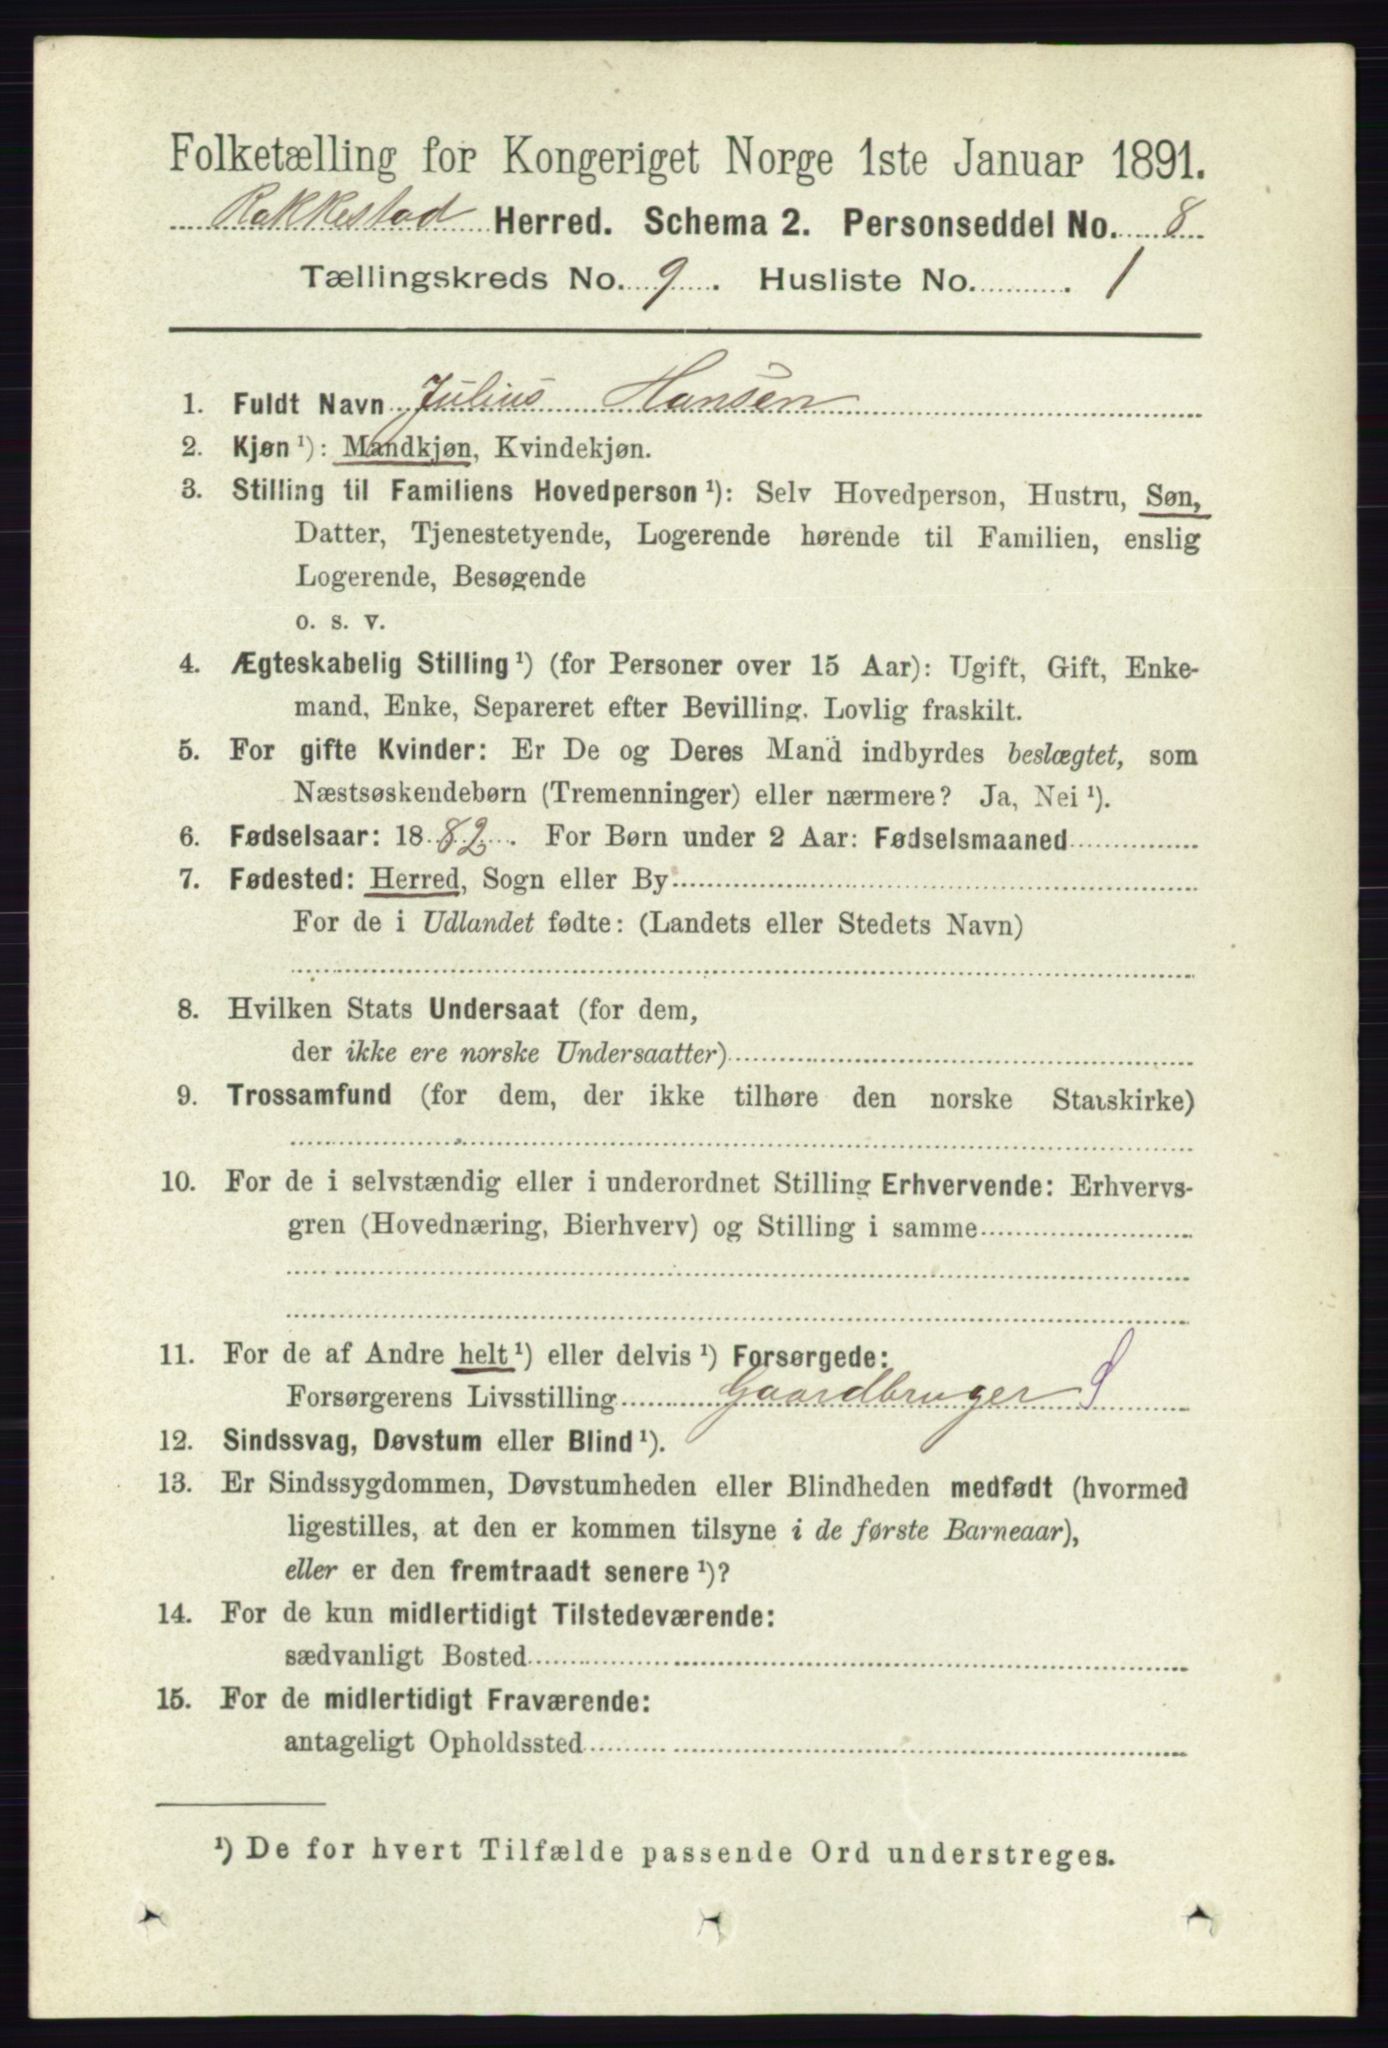 Folketælling for Kongeriget Norge 1ste Januar 1891.
Rakkestad Herred. Schema 2. Personseddel No. 8
Tællingskreds No. 9. Husliste No. 1
1. Fuldt Navn Julius Hansen
2. Kjøn ¹): Mandkjøn, Kvindekjøn.
3. Stilling til Familiens Hovedperson ¹): Selv Hovedperson, Hustru, Søn,
Datter, Tjenestetyende, Logerende hørende til Familien, enslig
Logerende, Besøgende
o. s. v.
4. Ægteskabelig Stilling ¹) (for Personer over 15 Aar): Ugift, Gift, Enke-
mand, Enke, Separeret efter Bevilling. Lovlig fraskilt.
5. For gifte Kvinder: Er De og Deres Mand indbyrdes beslægtet, som
Næstsøskendebørn (Tremenninger) eller nærmere? Ja, Nei ¹).
6. Fødselsaar: 1882. For Børn under 2 Aar: Fødselsmaaned
7. Fødested: Herred, Sogn eller By
For de i Udlandet fødte: (Landets eller Stedets Navn)
8. Hvilken Stats Undersaat (for dem,
der ikke ere norske Undersaatter)
9. Trossamfund (for dem, der ikke tilhøre den norske Statskirke)
10. For de i selvstændig eller i underordnet Stilling Erhvervende: Erhvervs-
gren (Hovednæring, Bierhverv) og Stilling i samme
11. For de af Andre helt ¹) eller delvis ¹) Forsørgede:
Forsørgerens Livsstilling Gaardbruger S
12. Sindssvag, Døvstum eller Blind ¹).
13. Er Sindssygdommen, Døvstumheden eller Blindheden medfødt (hvormed
ligestilles, at den er kommen tilsyne i de første Barneaar),
eller er den fremtraadt senere ¹)?
14. For de kun midlertidigt Tilstedeværende:
sædvanligt Bosted
15. For de midlertidigt Fraværende:
antageligt Opholdssted
¹) De for hvert Tilfælde passende Ord understreges.